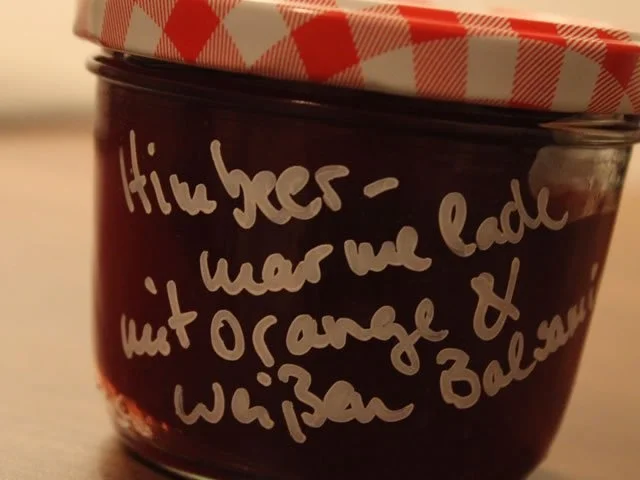 Himbeer-
marmelade
mit Orange &
weißen Balsami